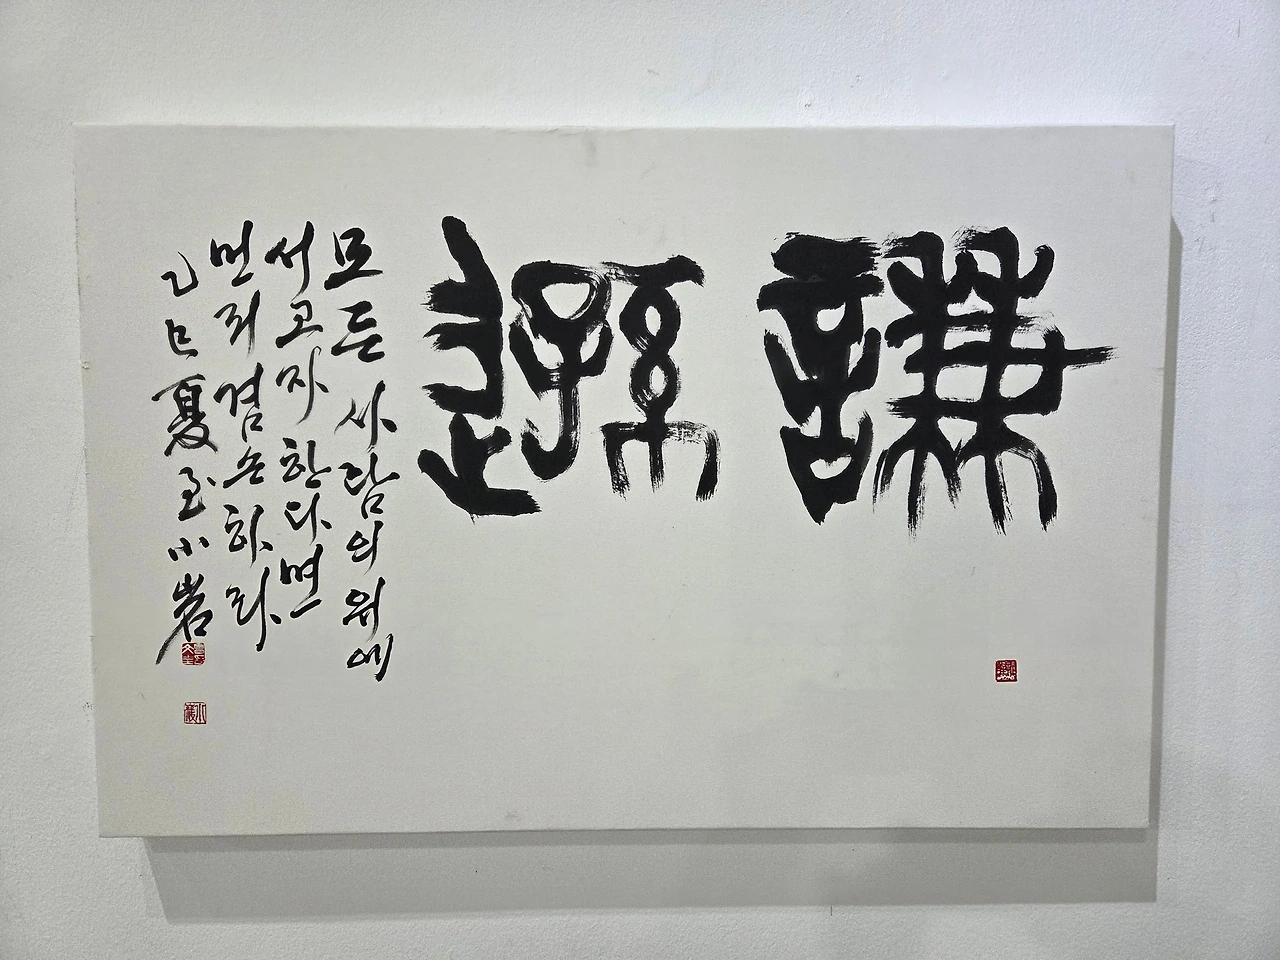 謙遜
모든 사람의 위에
서고자 한다면
먼저 겸손하라
乙巳夏至小岩